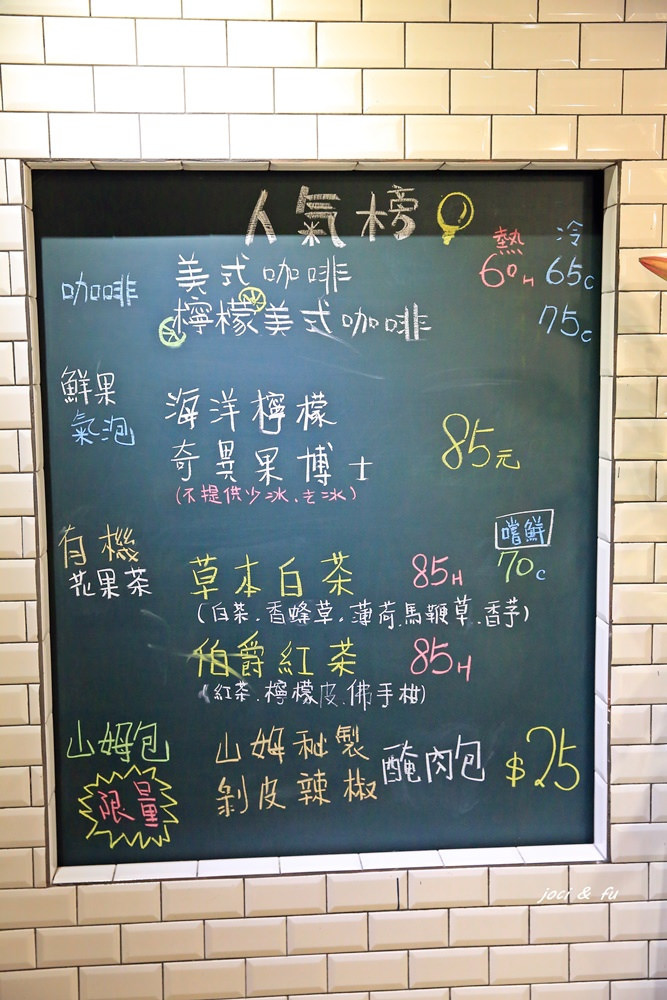 人氣榜
熱 冷
咖啡 美式咖啡 60H 65C
檸檬美式咖啡 75C
鮮果 海洋檸檬
氣泡 奇異果博士 85元
(不提供少冰.去冰)
有機 嚐鮮
花果茶 草本白茶 85H 70C
(白茶.香蜂草.薄荷.馬鞭草.香芋)
伯爵紅茶 85H
(紅茶.檸檬皮.佛手柑)
山姆包 山姆秘製
限量 剝皮辣椒 醃肉包 $25
joci & fu